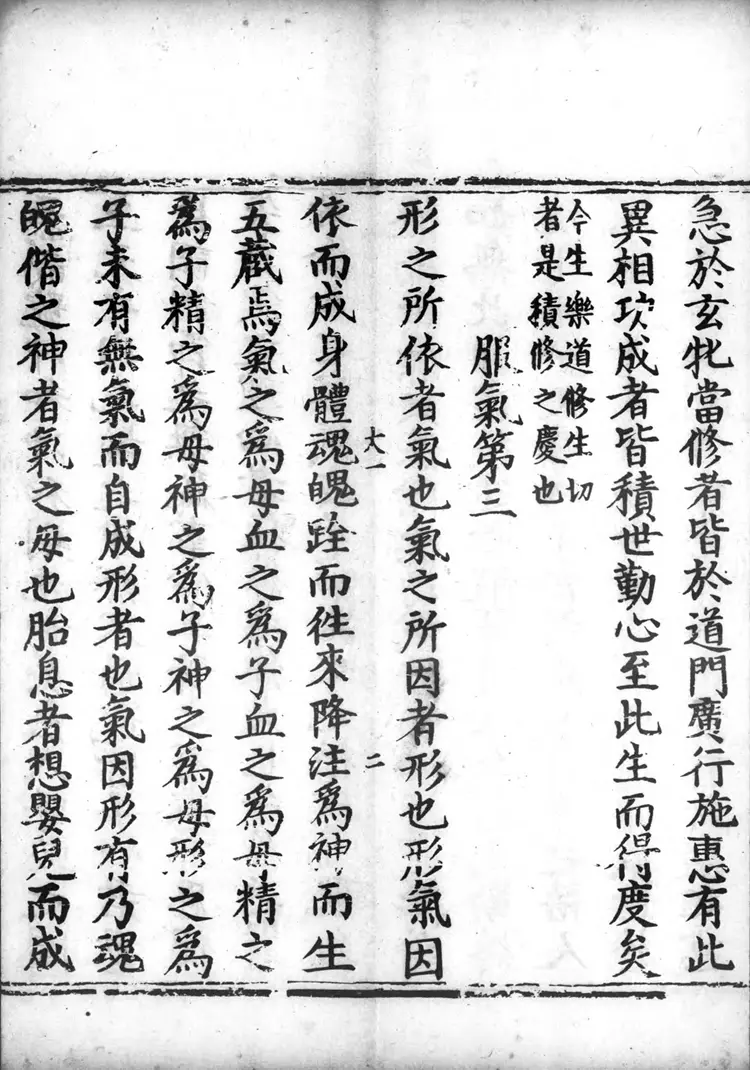 急於玄牝當修者皆於道門廣行施惠有此
異相次成者皆積世勤心至此生而得度矣
今生樂道修生切
者是積修之慶也
服氣第三
形之所依者氣也氣之所因者形也形氣因
大一 二
依而成身體魂魄跧而徃來降注爲神而生
五藏焉氣之爲母血之爲子血之爲母精之
爲子精之爲母神之爲子神之爲母形之爲
子未有無氣而自成形者也氣因形有乃魂
魄偕之神者氣之母也胎息者想嬰兒而成